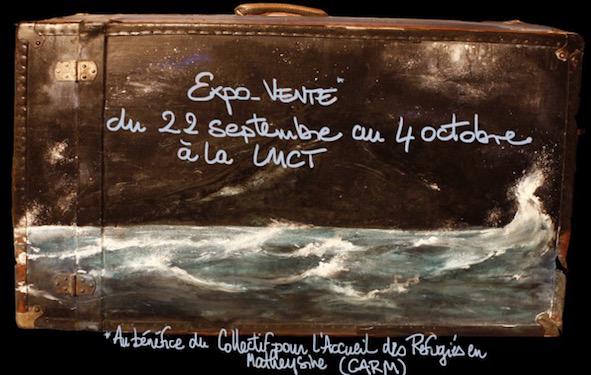 Expo-VENTE*
du 22 septembre au 4 octobre
à la LMCT
*Au bénéfice du Collectif pour l'Accueil des Réfugiés en
Matheysine (CARM)